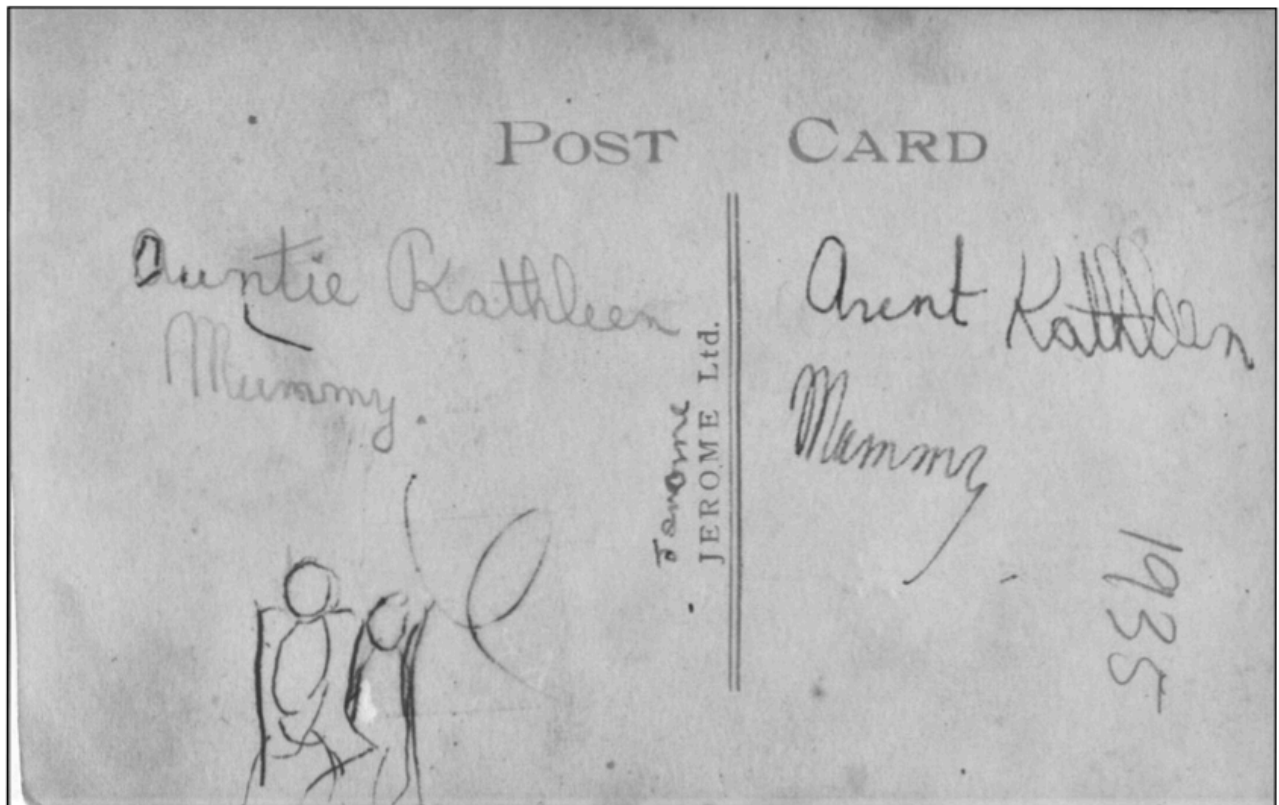 POST CARD
Auntie Kathleen
Mummy.
Jerome
JEROME Ltd.
Aunt Kathleen
Mummy
1935